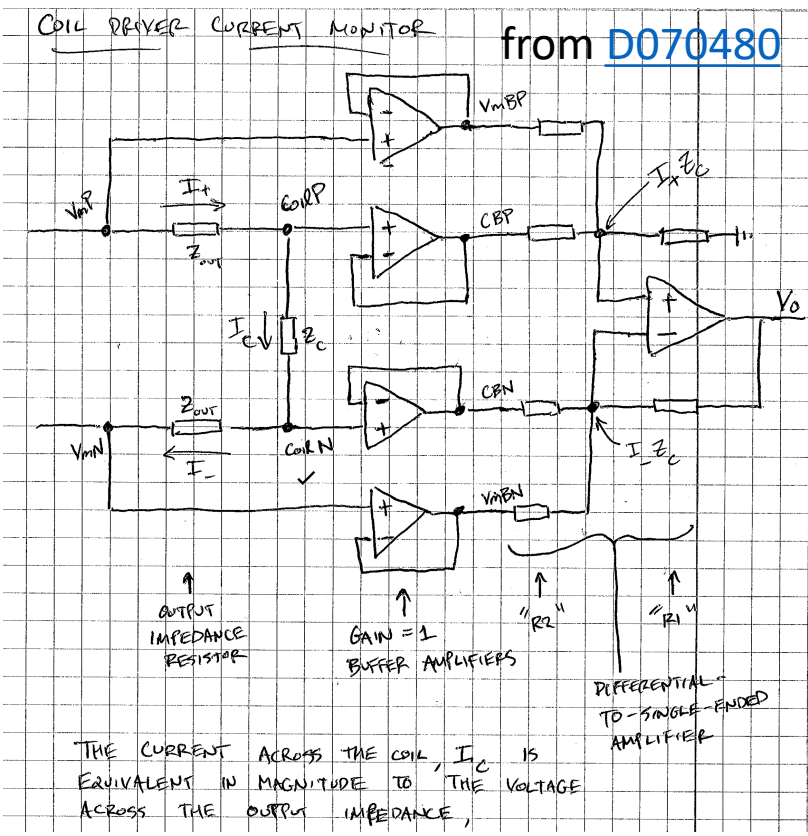 COIL DRIVER CURRENT MONITOR
from D070480
VmBP
-
+
-
I+
VmP
COILP
Zout
+
-
CBP
I× Zc
+
-
Vo
Ic
Zc
Zout
-
+
CBN
VmN
I-
COIL N
I- Zc
+
-
VmBN
"R2"
"R1"
OUTPUT
IMPEDANCE
RESISTOR
GAIN = 1
BUFFER AMPLIFIERS
DIFFERENTIAL-
TO-SINGLE-ENDED
AMPLIFIER
THE CURRENT ACROSS THE COIL, Ic IS
EQUIVALENT IN MAGNITUDE TO THE VOLTAGE
ACROSS THE OUTPUT IMPEDANCE,